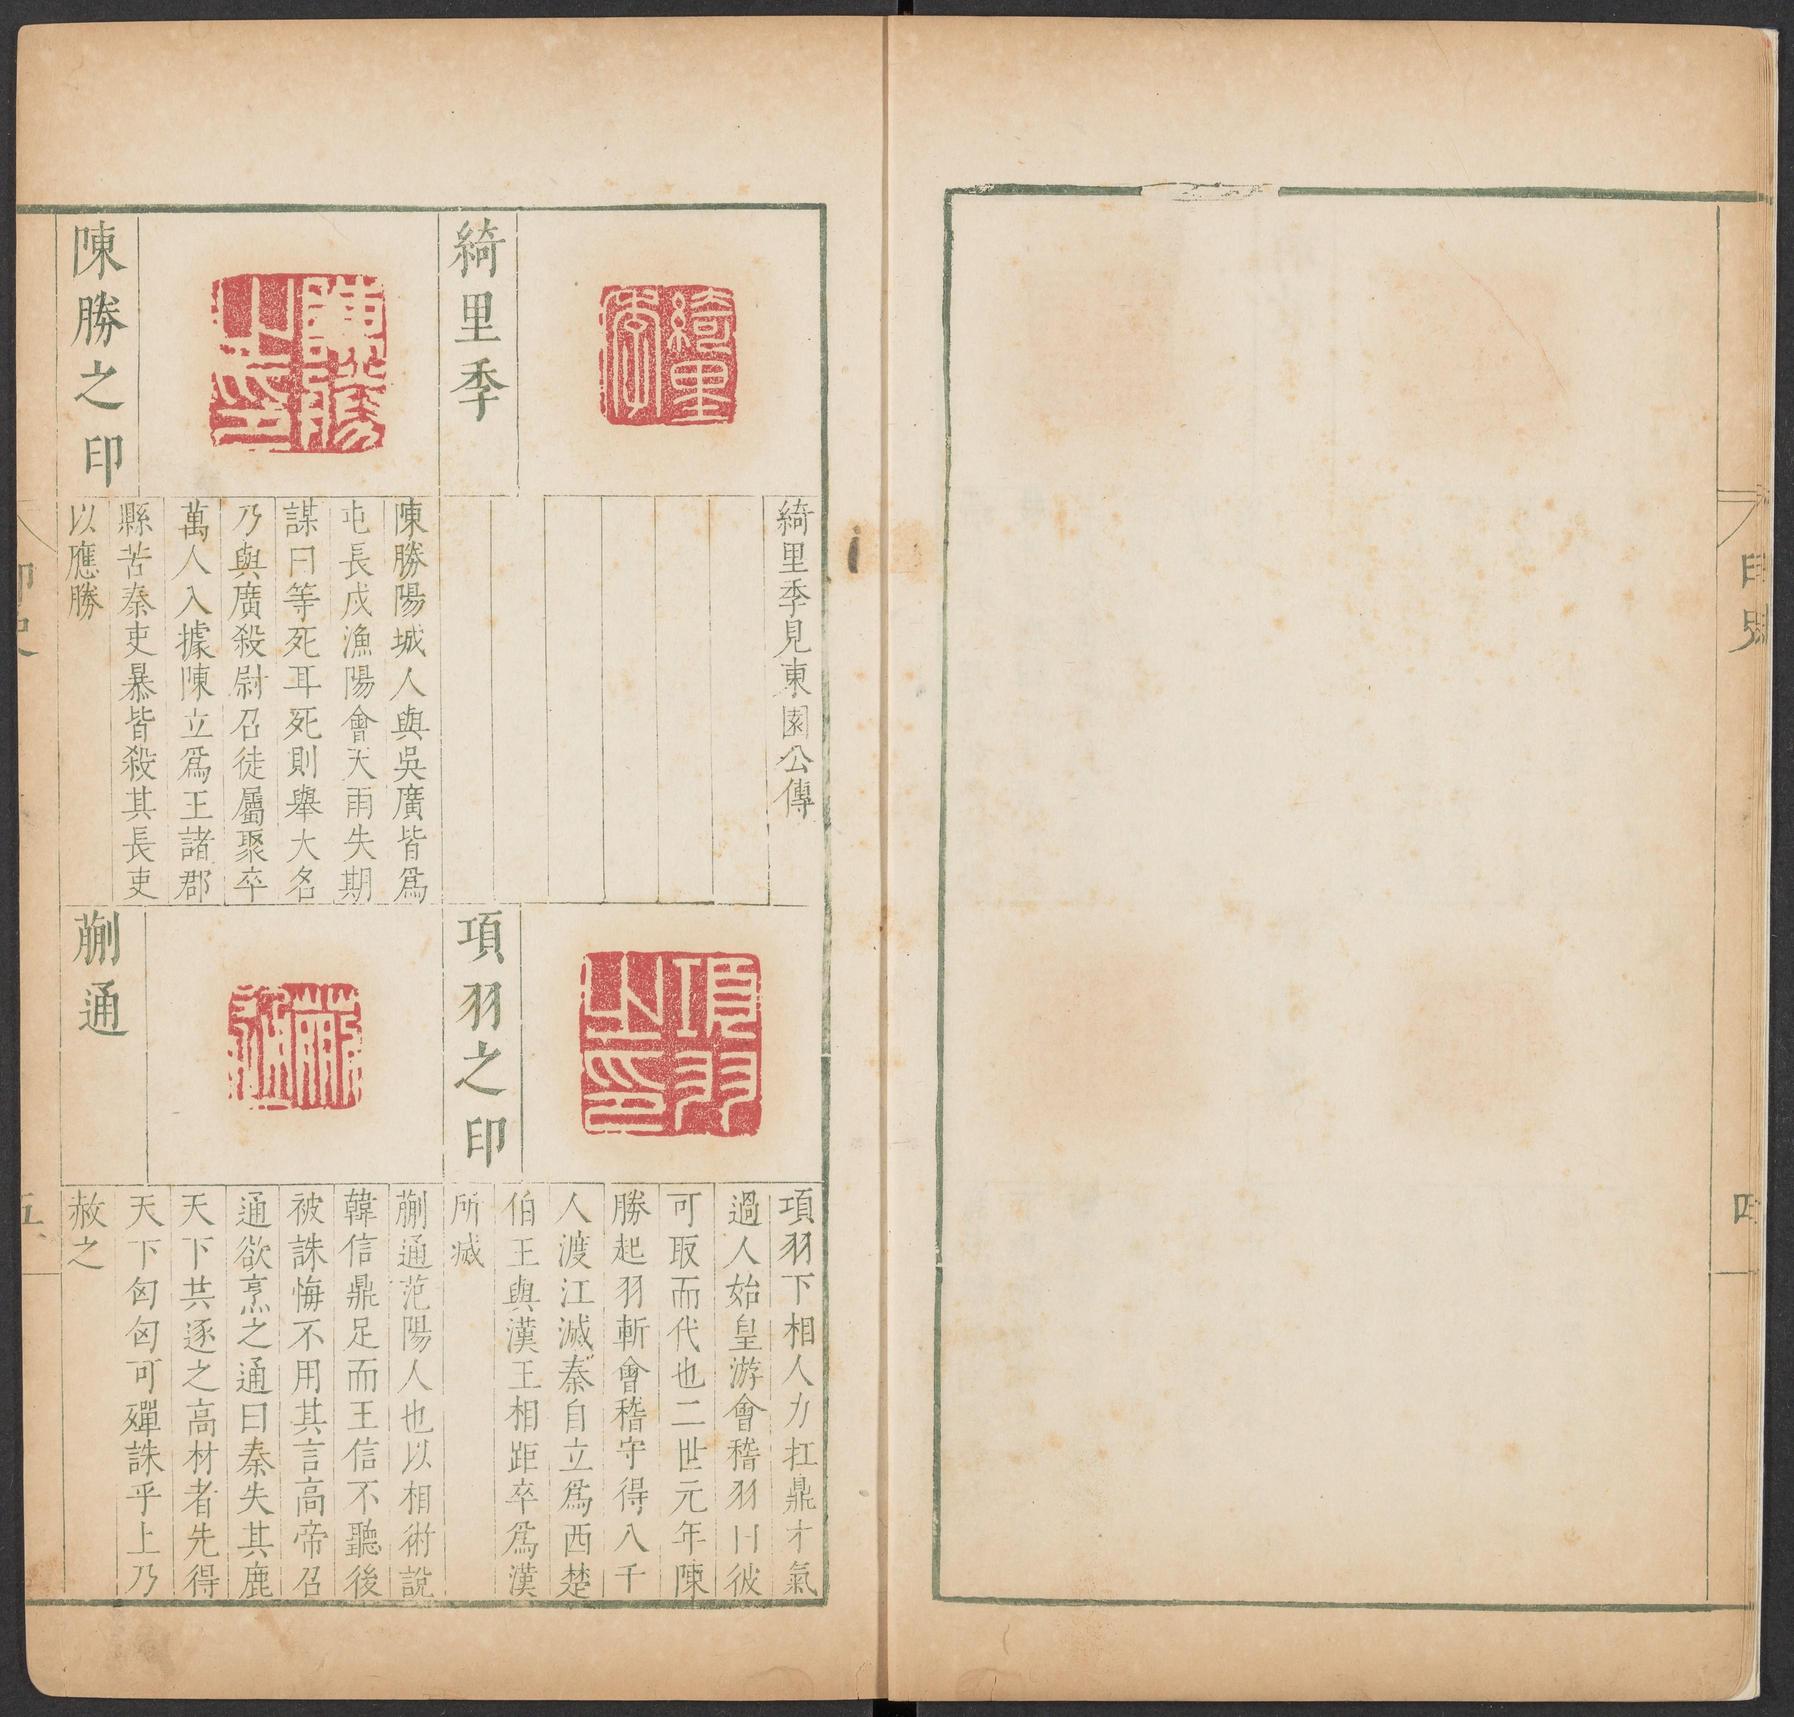 印史
四
綺里季
綺里季
綺里季見東園公傳
陳勝之印
陳勝之印
陳勝陽城人與吳廣皆爲
屯長戍漁陽會天雨失期
謀曰等死耳死則舉大名
乃與廣殺尉召徒屬聚卒
萬人入據陳立爲王諸郡
縣苦秦吏暴皆殺其長吏
以應勝
項羽之印
項羽之印
項羽下相人力扛鼎才氣
過人始皇游會稽羽曰彼
可取而代也二世元年陳
勝起羽斬會稽守得八千
人渡江滅秦自立爲西楚
伯王與漢王相距卒爲漢
所滅
蒯通
蒯通
蒯通范陽人也以相術說
韓信鼎足而王信不聽後
被誅悔不用其言高帝召
通欲烹之通曰秦失其鹿
天下共逐之高材者先得
天下匈匈可殫誅乎上乃
赦之
印史
五